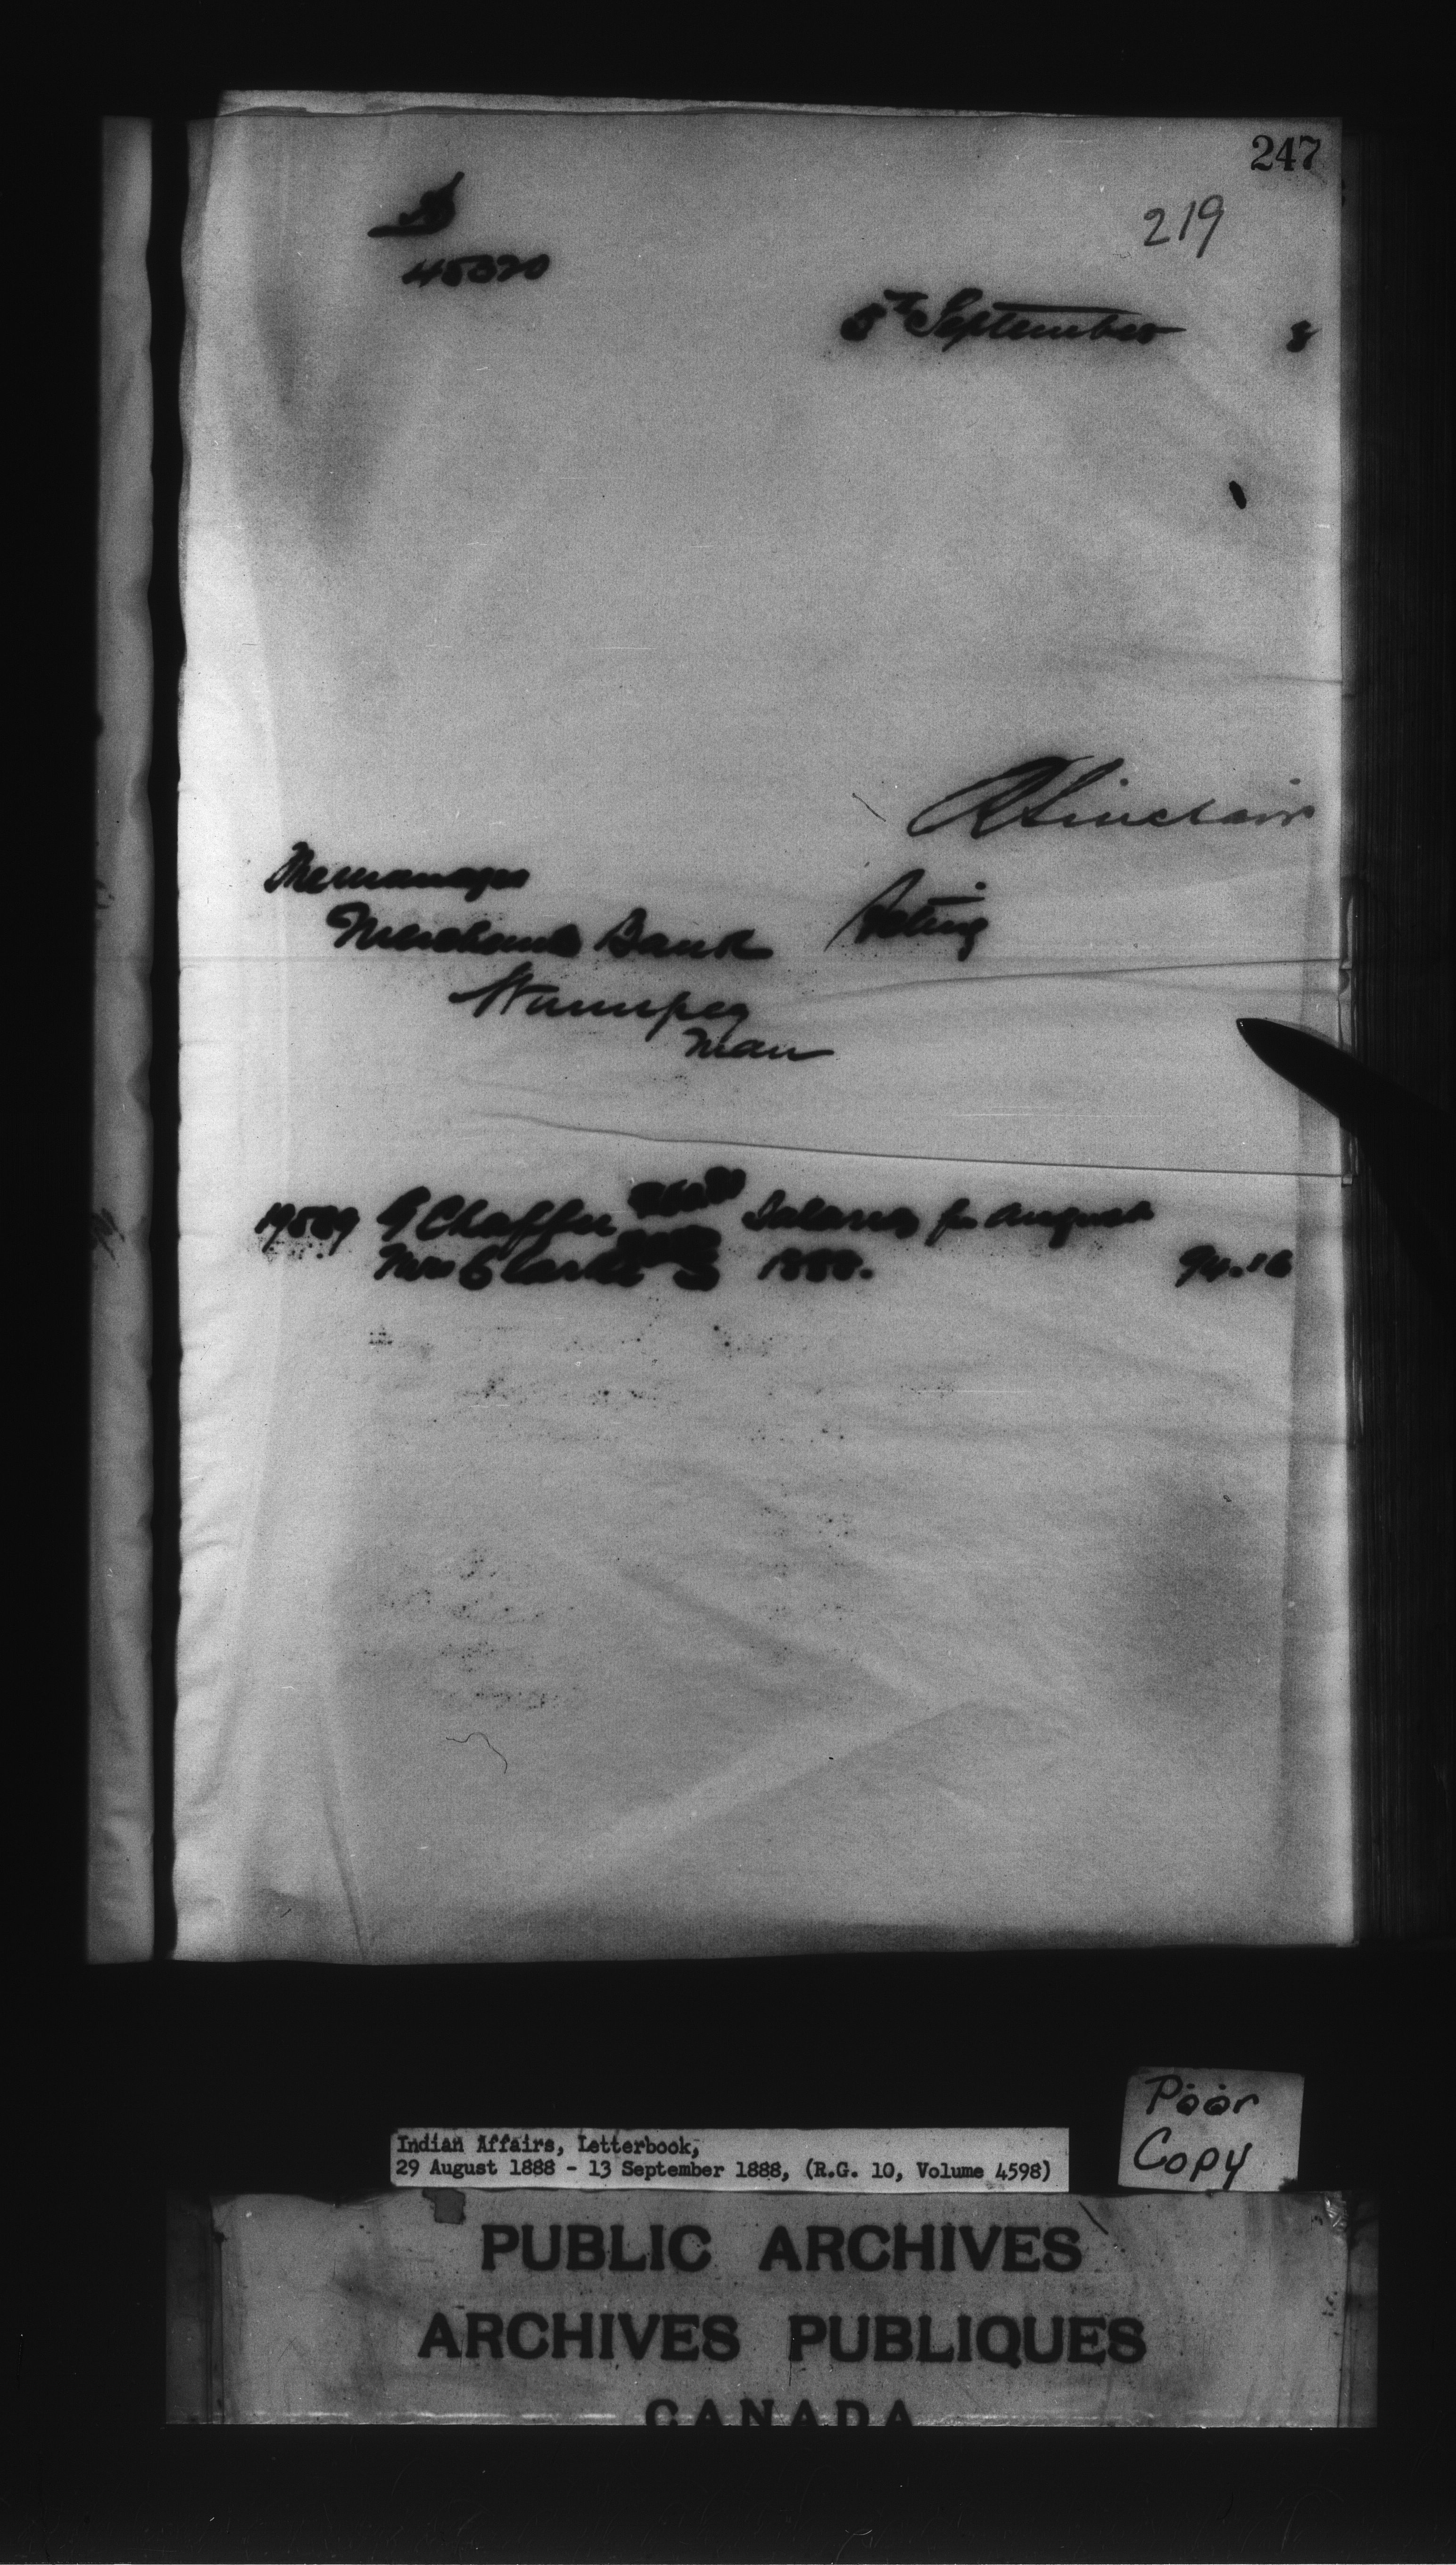 247
219
45320
5th September 8
R Sinclair
The manager
Merchants Bank Acting
Winnipeg
Man
19589 G Chaffee Salaries for August
Mrs Clarke 1888. 94.16
Poor
Copy
Indian Affairs, Letterbook,
29 August 1888 - 13 September 1888, (R.G. 10, Volume 4598)
PUBLIC ARCHIVES
ARCHIVES PUBLIQUES
CANADA